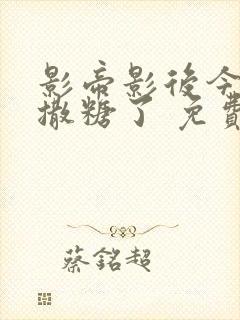 影帝影後今
撒糖了 免費
蔡銘超